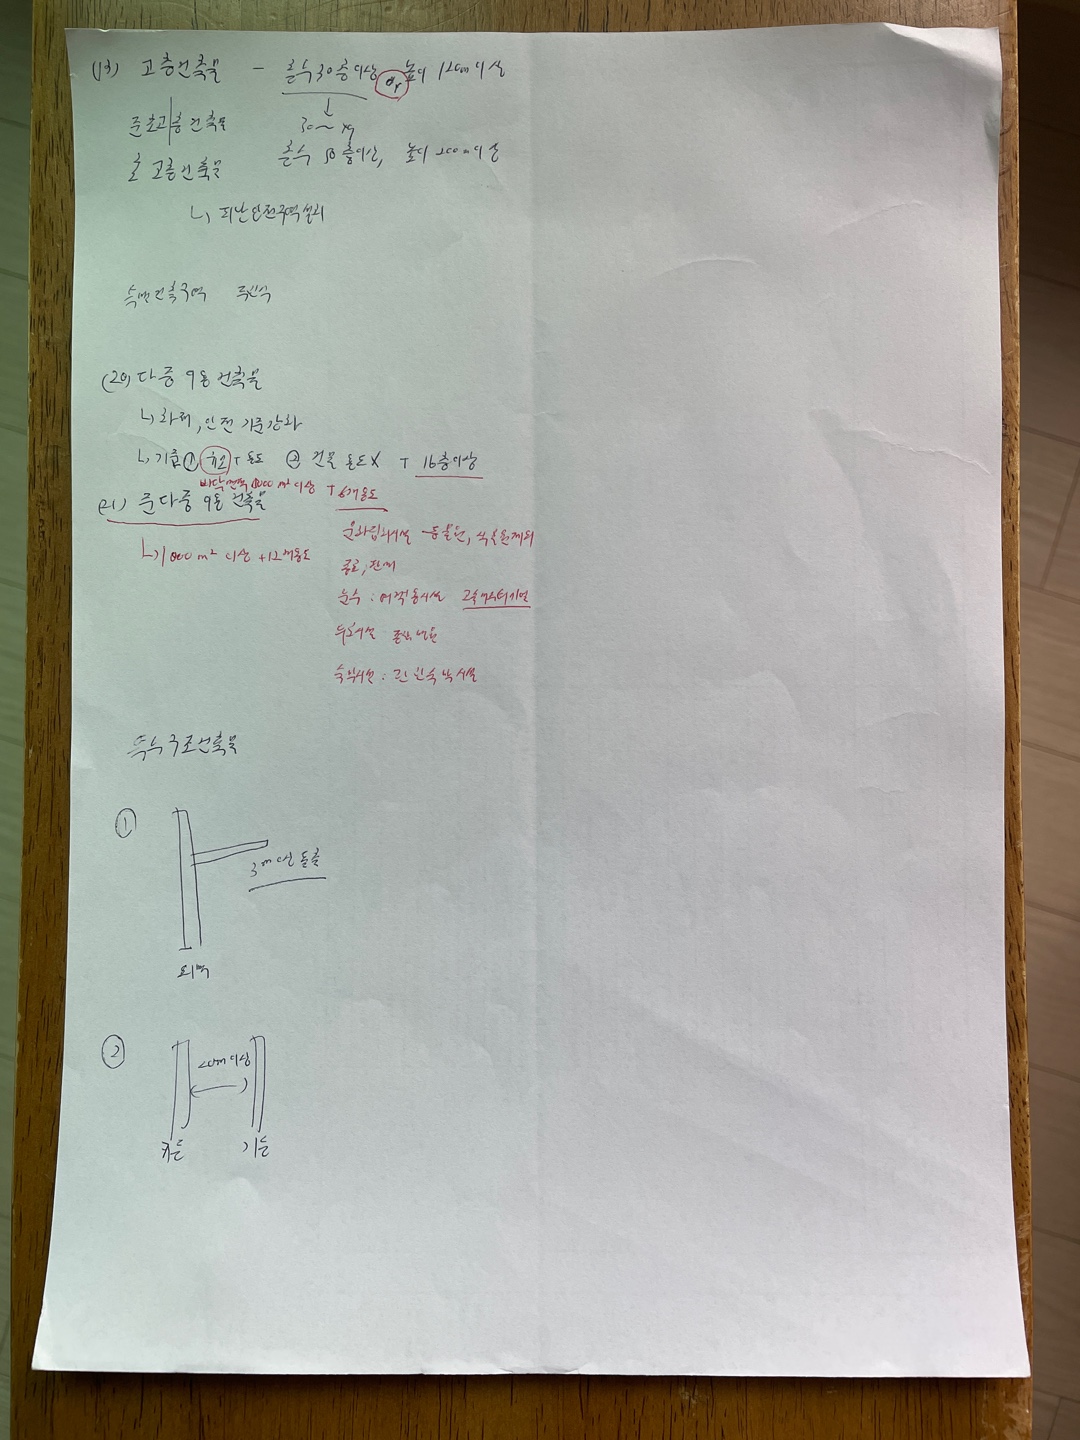 (19) 고층건축물 - 층수 30층이상 or 높이 120m이상
준초고층건축물 30~49
초고층건축물 층수 50층이상, 높이 200m이상
ㄴ, 피난안전구역설치
특별건축구역
(20) 다중이용건축물
ㄴ, 화재, 안전 기준강화
ㄴ, 기준 ① 규모+용도 ② 건물 용도X + 16층이상
바닥면적 5000m² 이상 + 6개용도
(21) 준다중이용건축물
ㄴ, 1000m² 이상 + 12개용도
문화집회시설 - 동물원, 식물원제외
종교, 판매
운수: 여객용시설
의료시설 종합병원
숙박시설: 관광숙박시설
특수구조건축물
①
3m이상 돌출
외벽
②
20m이상
기둥 기둥